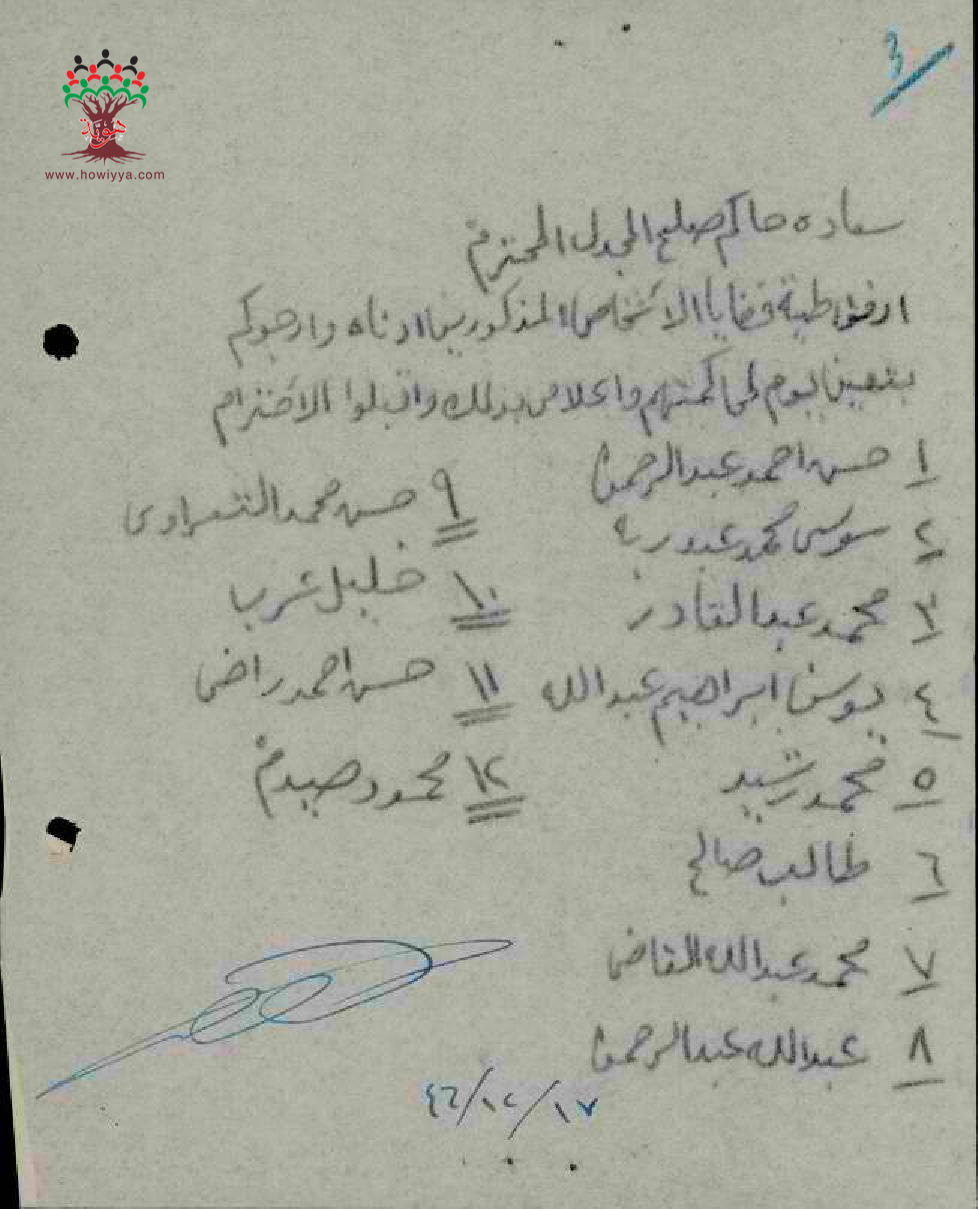 ٣
هوية
www.howiyya.com
سعاده حاكم صلح المجدل المحترم
ارفق طية قضايا الاشخاص المذكورين ادناه وارجوكم
بتعين يوم لمحاكمتهم واعلامي بذلك واقبلوا الاحترام
١ حسن احمد عبدالرحمن
٢ موسى محمد عبد ربه
٣ محمد عبدالقادر
٤ يوسف ابراهيم عبدالله
٥ محمد رشيد
٦ طالب صالح
٧ محمد عبدالله القاضي
٨ عبدالله عبدالرحمن
٩ حسن محمد الشعراوى
١٠ خليل عرب
١١ حسن احمد راضي
١٢ محمود صيدم
١٧/١٢/٤٦